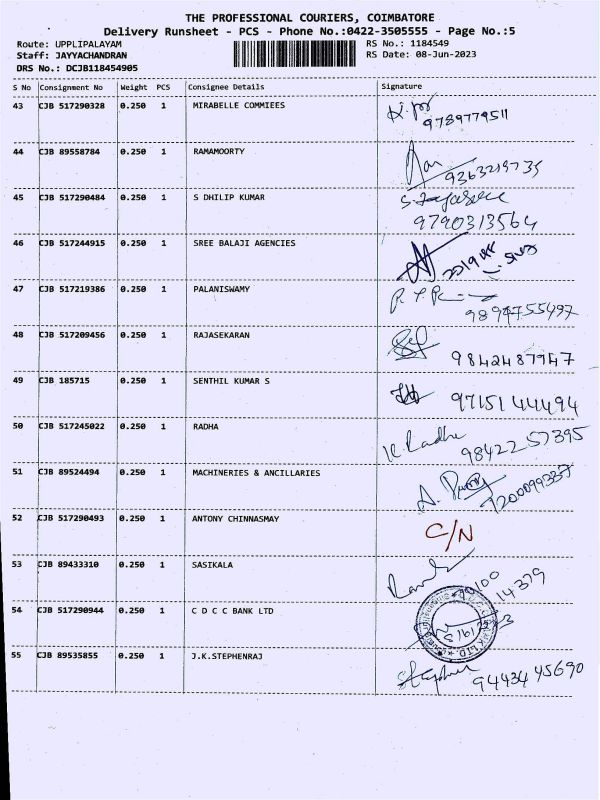 THE PROFESSIONAL COURIERS, COIMBATORE
Delivery Runsheet - PCS - Phone No.:0422-3505555 - Page No.:5
Route: UPPLIPALAYAM RS No.: 1184549
Staff: JAYYACHANDRAN RS Date: 08-Jun-2023
DRS No.: DCJB118454905
S No Consignment No Weight PCS Consignee Details Signature
43 CJB 517290328 0.250 1 MIRABELLE COMMIEES
9789779511
44 CJB 89558784 0.250 1 RAMAMOORTY
9363219735
45 CJB 517290484 0.250 1 S DHILIP KUMAR
9790313564
46 CJB 517244915 0.250 1 SREE BALAJI AGENCIES
47 CJB 517219386 0.250 1 PALANISWAMY
48 CJB 517209456 0.250 1 RAJASEKARAN
9842487947
49 CJB 185715 0.250 1 SENTHIL KUMAR S
97151 44494
50 CJB 517245022 0.250 1 RADHA
K Radha
98422 57395
51 CJB 89524494 0.250 1 MACHINERIES & ANCILLARIES
7200099337
52 CJB 517290493 0.250 1 ANTONY CHINNASMAY
C/N
53 CJB 89433310 0.250 1 SASIKALA
14379
54 CJB 517290944 0.250 1 C D C C BANK LTD
55 CJB 89535855 0.250 1 J.K.STEPHENRAJ
Stephen
94434 45690